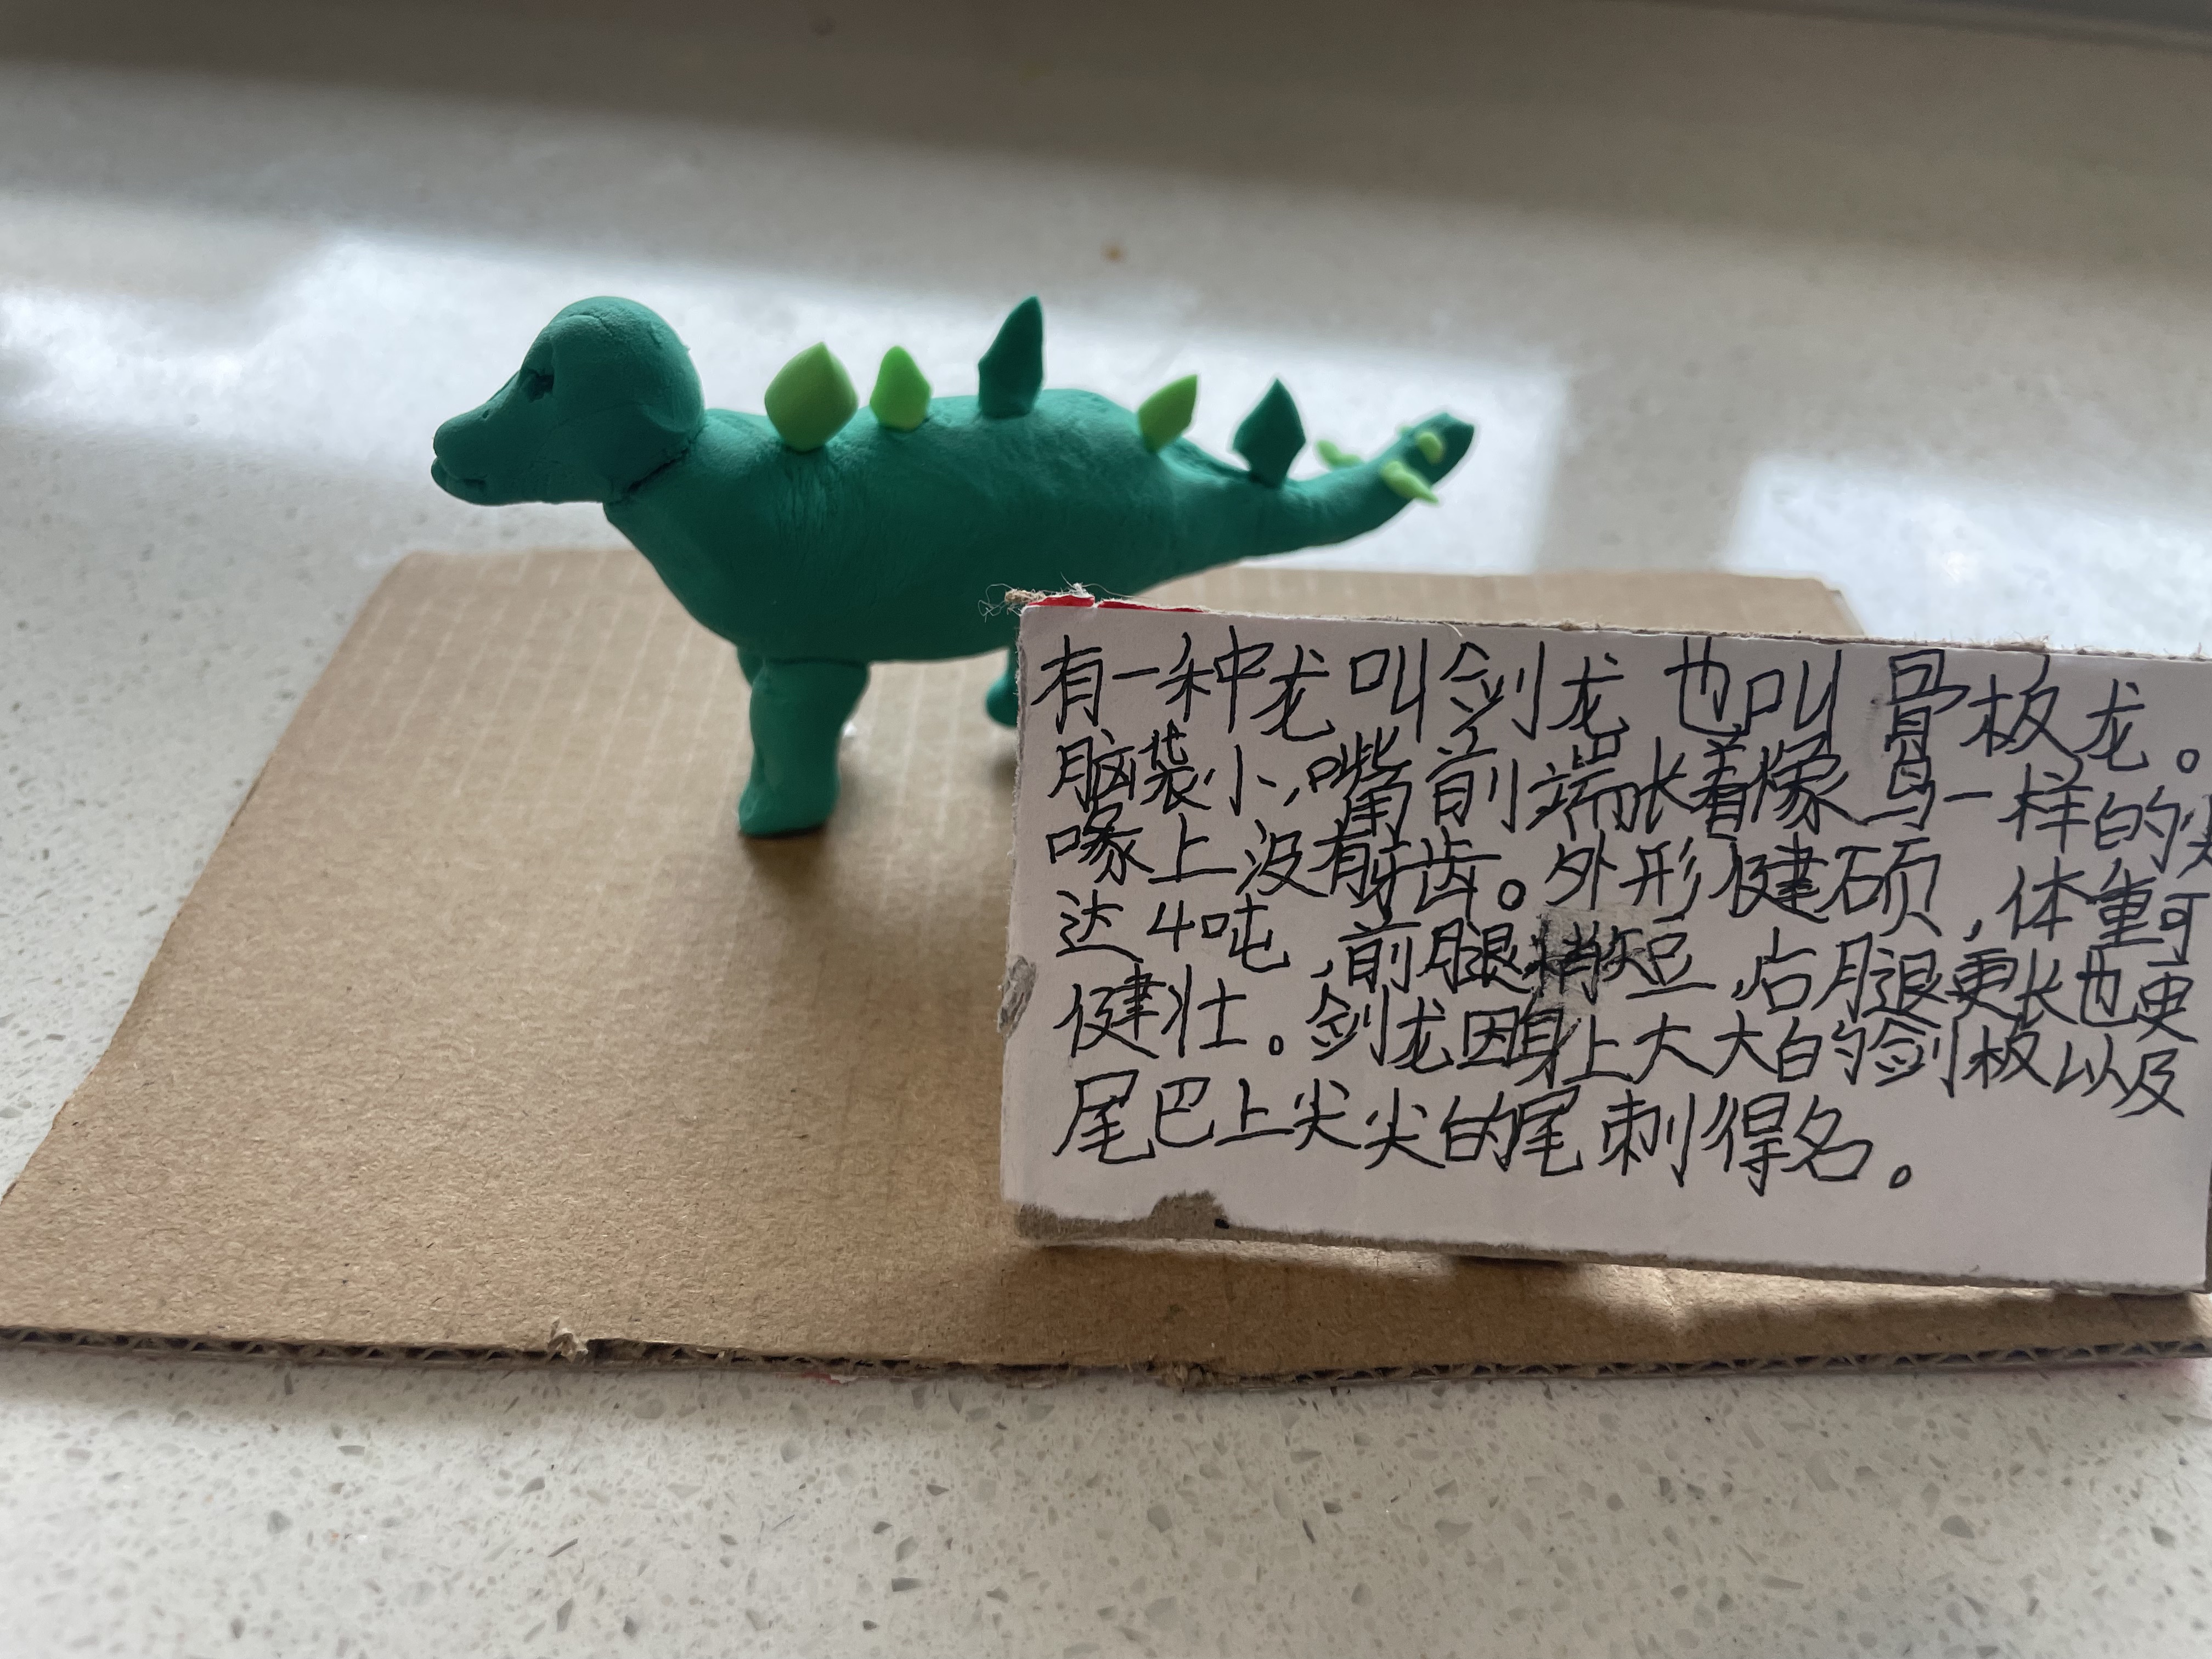 有一种龙叫剑龙也叫骨板龙。
脑袋小,嘴前端长着像鸟一样的尖
喙上没有牙齿。外形健硕,体重可
达4吨,前腿稍短,后腿更长也更
健壮。剑龙因身上大大的剑板以及
尾巴上尖尖的尾刺得名。